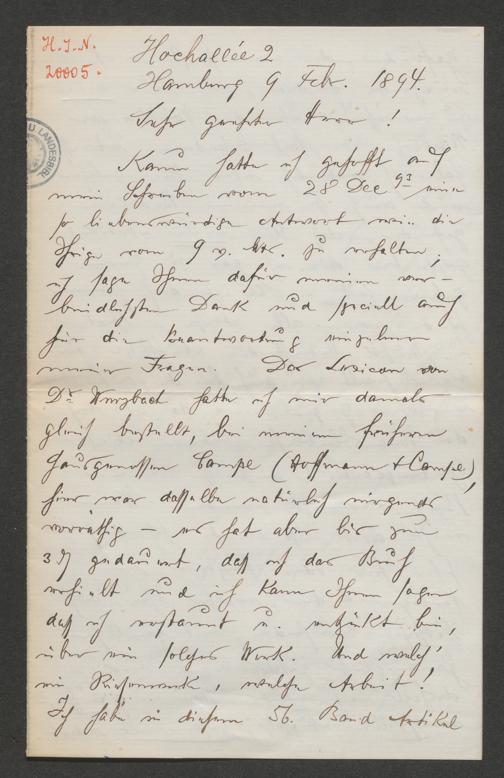 H. I. N.
20005.
U LANDESBIBL
Hochallée 2
Hamburg 9 Febr. 1894.
Sehr geehrter Herr!
Kaum hatte ich gehofft auf
mein Schreiben vom 28 Dec 93 eine
so liebenswürdige Antwort wie die
Ihrige vom 9 v. Mts. zu erhalten,
ich sage Ihnen dafür meinen ver-
bindlichsten Dank und speciell auch
für die Beantwortung einzelner
meiner Fragen. Das Lexicon von
Dr Wurzbach hatte ich mir damals
gleich bestellt, bei meinem früheren
Hausgenossen Campe (Hoffmann + Campe),
hier war dasselbe natürlich nirgends
vorräthig – es hat aber bis zum
3 gedauert, daß ich das Buch
erhielt und ich kann Ihnen sagen
daß ich erstaunt u. entzückt bin,
über ein solches Werk. Und welch'
ein Riesenwerk, welche Arbeit!
Ich habe in diesem 56. Band Artikel